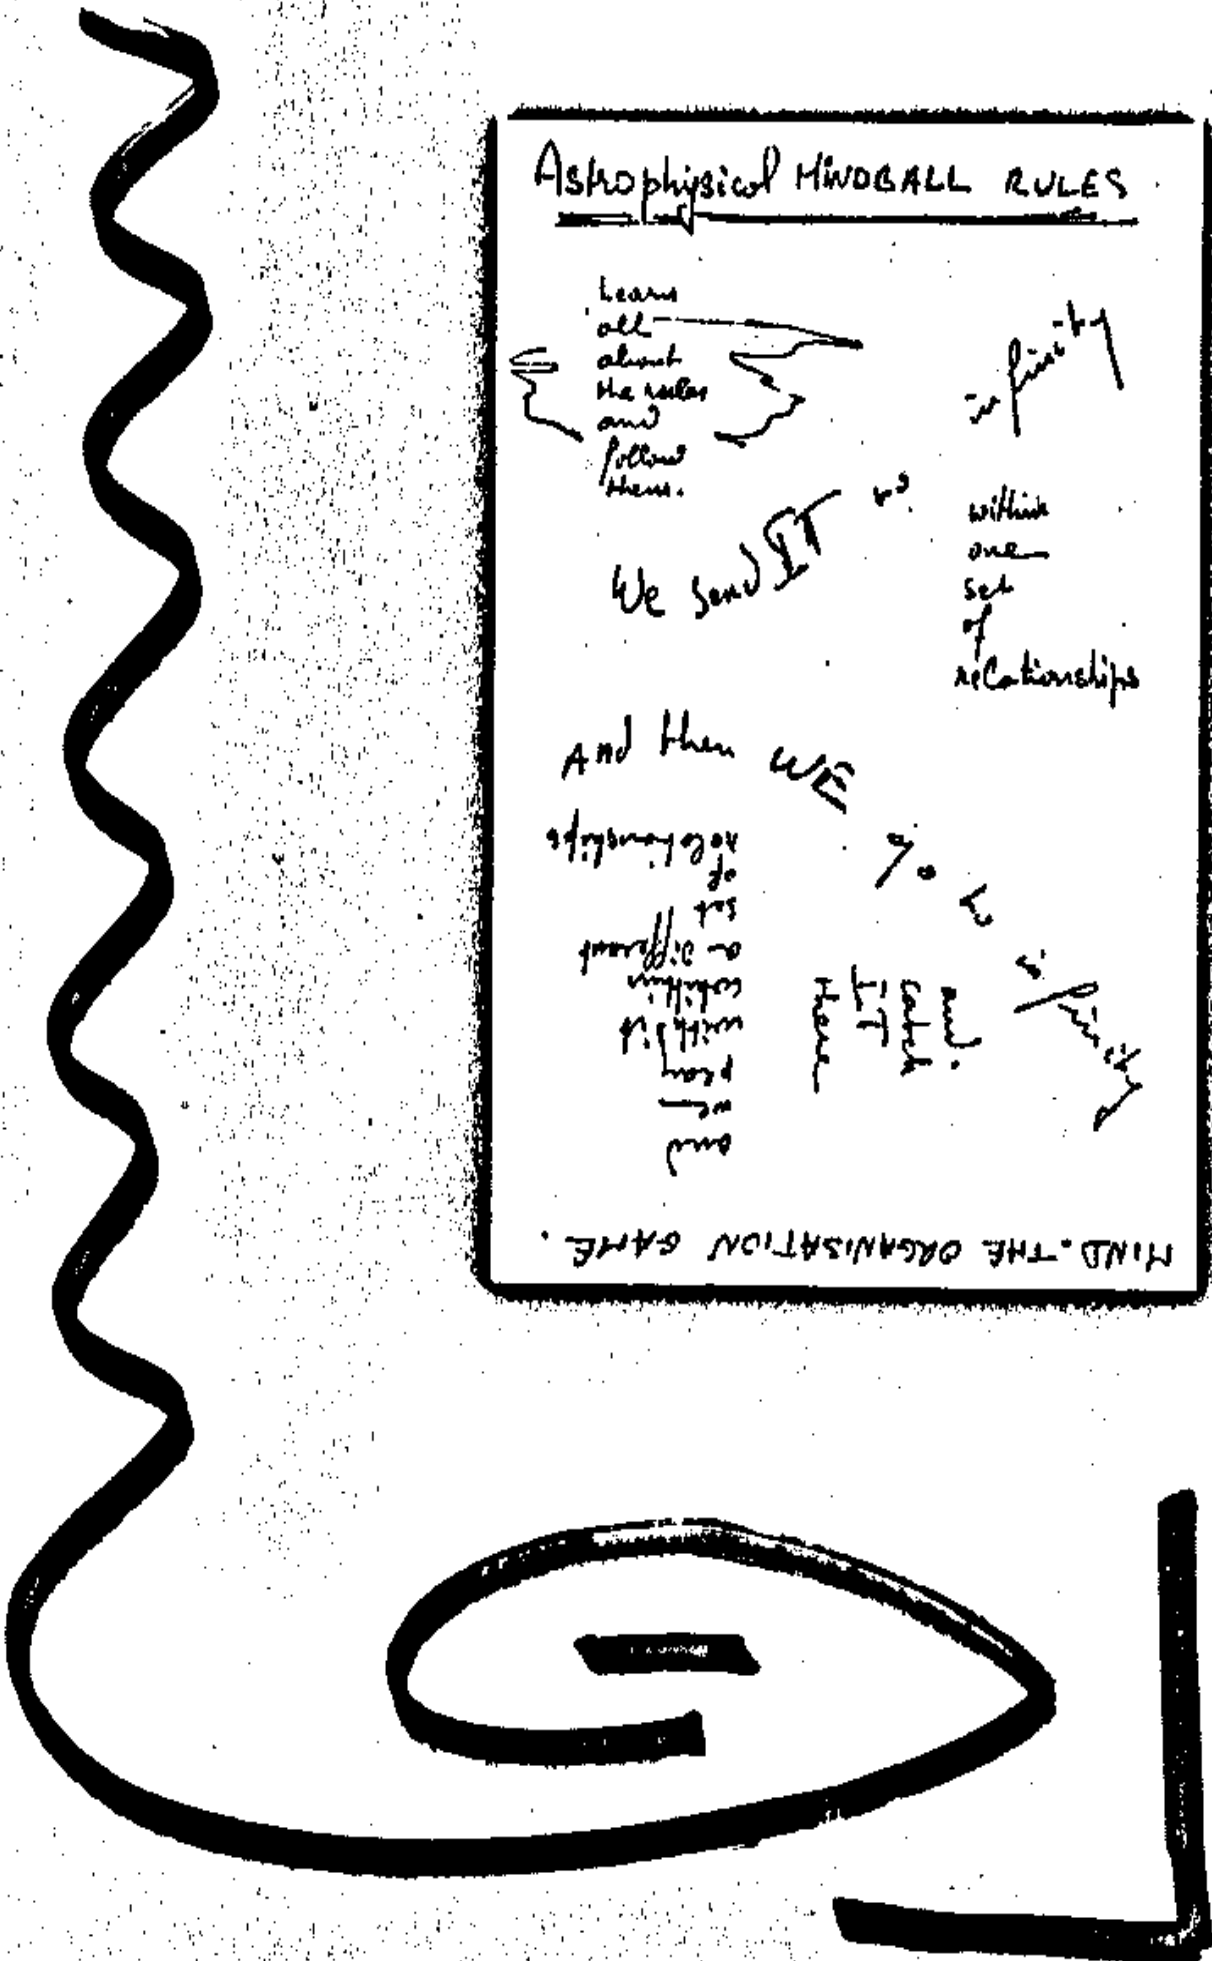 Astrophysical MINDBALL RULES
Learn
all
about
the rules
and
follow
them.
We send IT to
infinity
within
one
set
of
relationships
And then WE
go to
infinity
and
catch
IT
there
and
we
play
with it
whithin
a different
set
of
relationships
MIND. THE ORGANISATION GAME.